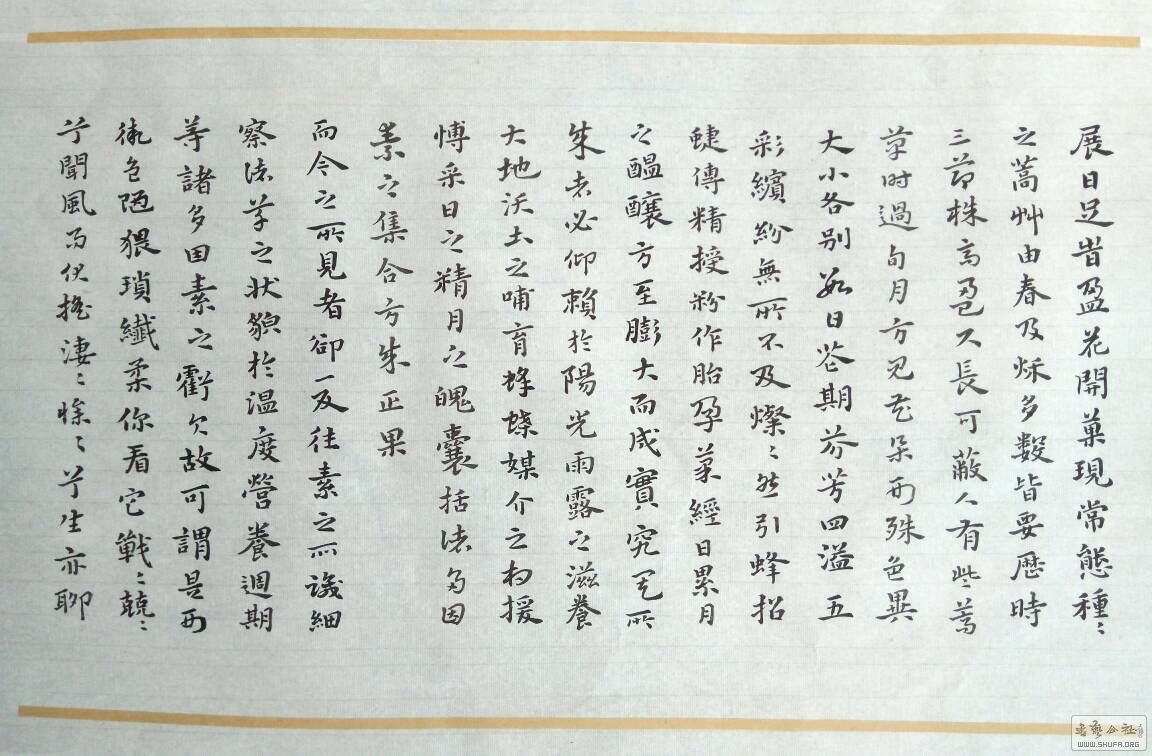 展日足皆盈花開菓現常態種〻
之蒿艸由春及秌多数皆要歷時
三節株高盈尺長可蔽人有些蒿
草时過旬月方見花朵形殊色異
大小各别如日花期芬芳四溢五
彩繽紛無所不及燦〻然引蜂招
蜨傳精授粉作胎孕菓經日累月
之醞釀方至膨大而成實究其所
朱者必仰賴於陽光雨露之滋養
大地沃土之哺育蜂蝶媒介之相援
博采日之精月之魄囊括諸多因
素之集合方朱正果
而今之所見者卻一反往素之所識細
察諸草之状貌於温度營養週期
等諸多因素之虧欠故可謂是形
穢色陋猥瑣纖柔你看它戰〻兢〻
兮聞風而伏摇淒〻慘〻兮生亦聊
書藝公社
WWW.SHUFA.ORG